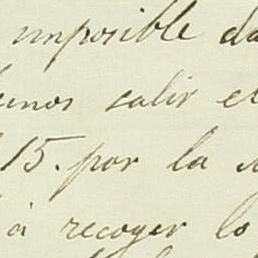 imposible da
salir el
15. por la
à recoger lo